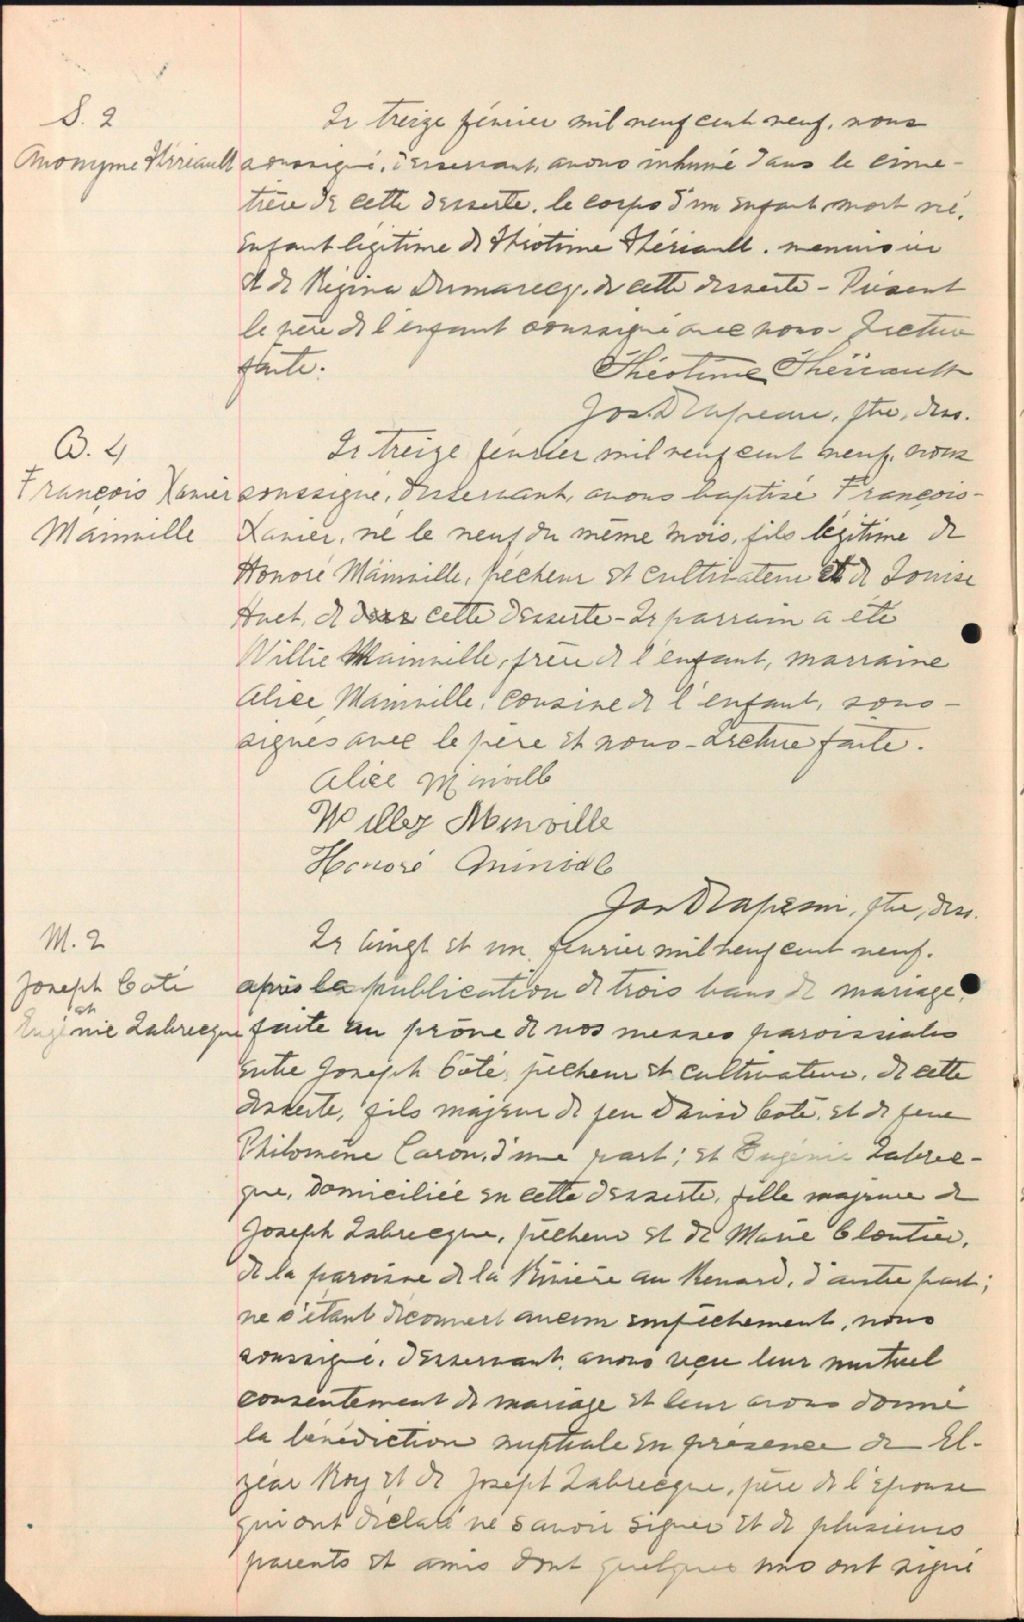 S. 2
Anonyme Thériault
Le treize février mil neuf cent neuf, nous
soussigné, desservant, avons inhumé dans le cime-
tière de cette desserte, le corps d'un enfant mort né,
enfant légitime de Théotime Thériault, menuisier
et de Régina Dumarecq, de cette desserte - Présent
le père de l'enfant soussigné avec nous - Lecture
faite.
Théotime Thériault
Jos. Drapeau, ptre, dess.
B. 4
François Xavier
Mainville
Le treize février mil neuf cent neuf, nous
soussigné, desservant, avons baptisé François-
Xavier, né le neuf du même mois, fils légitime de
Honoré Mainville, pécheur et cultivateur et de Louise
Huet, de cette desserte - Le parrain a été
Willie Mainville, frère de l'enfant, marraine
Alice Mainville, cousine de l'enfant, sous-
signés avec le père et nous - Lecture faite.
Alice Minville
Willey Menville
Honoré Minville
Jos Drapeau, ptre, dess.
M. 2
Joseph Coté
et
Eugénie Labrecque
Le vingt et un février mil neuf cent neuf,
après la publication de trois bans de mariage,
faite au prône de nos messes paroissiales
entre Joseph Côté, pécheur et cultivateur, de cette
desserte, fils majeur de feu David Coté, et de feue
Philomène Caron, d'une part; et Eugénie Labrec-
que, domiciliée en cette desserte, fille majeure de
Joseph Labrecque, pécheur et de Marie Cloutier,
de la paroisse de la Rivière au Renard, d'autre part;
ne s'étant découvert aucun empêchement, nous
soussigné, desservant, avons reçu leur mutuel
consentement de mariage et leur avons donné
la bénédiction nuptiale en présence de El-
zéar Roy et de Joseph Labrecque, père de l'épouse
qui ont déclaré ne savoir signer et de plusieurs
parents et amis dont quelques uns ont signé